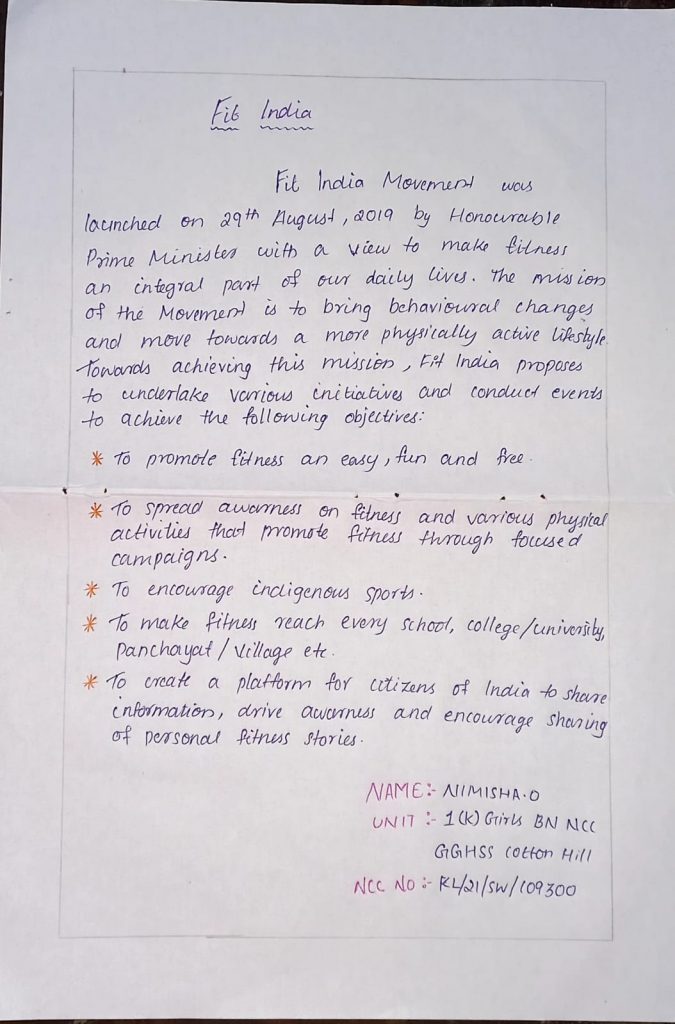 Fit India
Fit India Movement was
launched on 29th August, 2019 by Honourable
Prime Minister with a view to make fitness
an integral part of our daily lives. The mission
of the Movement is to bring behavioural changes
and move towards a more physically active lifestyle.
Towards achieving this mission, Fit India proposes
to undertake various initiatives and conduct events
to achieve the following objectives:
* To promote fitness an easy, fun and free.
* To spread awarness on fitness and various physical
activities that promote fitness through focused
campaigns.
* To encourage indigenous sports.
* To make fitness reach every school, college/university,
Panchayat / Village etc.
* To create a platform for citizens of India to share
information, drive awarness and encourage sharing
of personal fitness stories.
NAME:- NIMISHA.O
UNIT :- 1(K) Girls BN NCC
GGHSS Cotton Hill
NCC NO :- KL/21/SW/109300